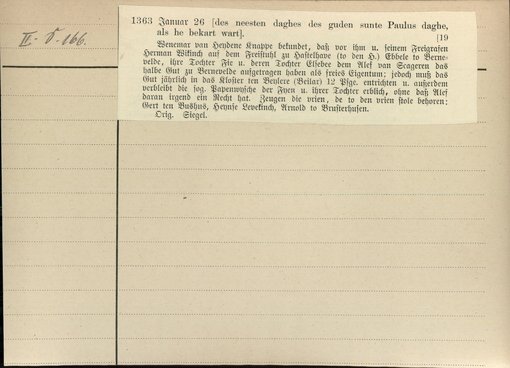 II. d. 166.
1363 Januar 26 [des neesten daghes des guden sunte Paulus daghe,
als he bekart wart]. [19
Wenemar van Heydene Knappe bekundet, daß vor ihm u. seinem Freigrafen
Herman Wikinch auf dem Freistuhl zu Hastelhave (to den H.) Ebbele to Berne-
velde, ihre Tochter Fie u. deren Tochter Elsebee dem Alef van Scageren das
halbe Gut zu Bernevelde aufgetragen haben als freies Eigentum; jedoch muß das
Gut jährlich in das Kloster ten Beylere (Beilar) 12 Pfge. entrichten u. außerdem
verbleibt die sog. Papenwysche der Fyen u. ihrer Tochter erblich, ohne daß Alef
daran irgend ein Recht hat. Zeugen die vrien, de to den vrien stole behoren:
Gert ten Bushus, Heynse Levekinch, Arnold to Brusterhusen.
Orig. Siegel.